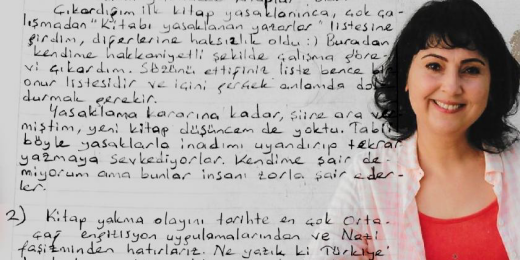 Çıkardığım ilk kitap yasaklanınca, çok ça-
lışmadan "Kitabı yasaklanan yazarlar" listesine
girdim, diğerlerine haksızlık oldu :) Buradan
kendime hakkaniyetli şekilde çalışma göre-
vi çıkardım. Sözünü ettiğiniz liste bence bir
onur listesidir ve içini gerçek anlamda dol
durmak gerekir.
Yasaklama kararına kadar, şiire ara ver
miştim, yeni kitap düşüncem de yoktu. Tabi
böyle yasaklarla inadımı uyandırıp tekrar
yazmaya sevkediyorlar. Kendime şair de-
miyorum ama bunlar insanı zorla şair eder-
ler.
2) Kitap yakma olayını tarihte en çok Orta-
çağ engizisyon uygulamalarından ve Nazi
faşizminden hatırlarız. Ne yazık ki Türkiye'